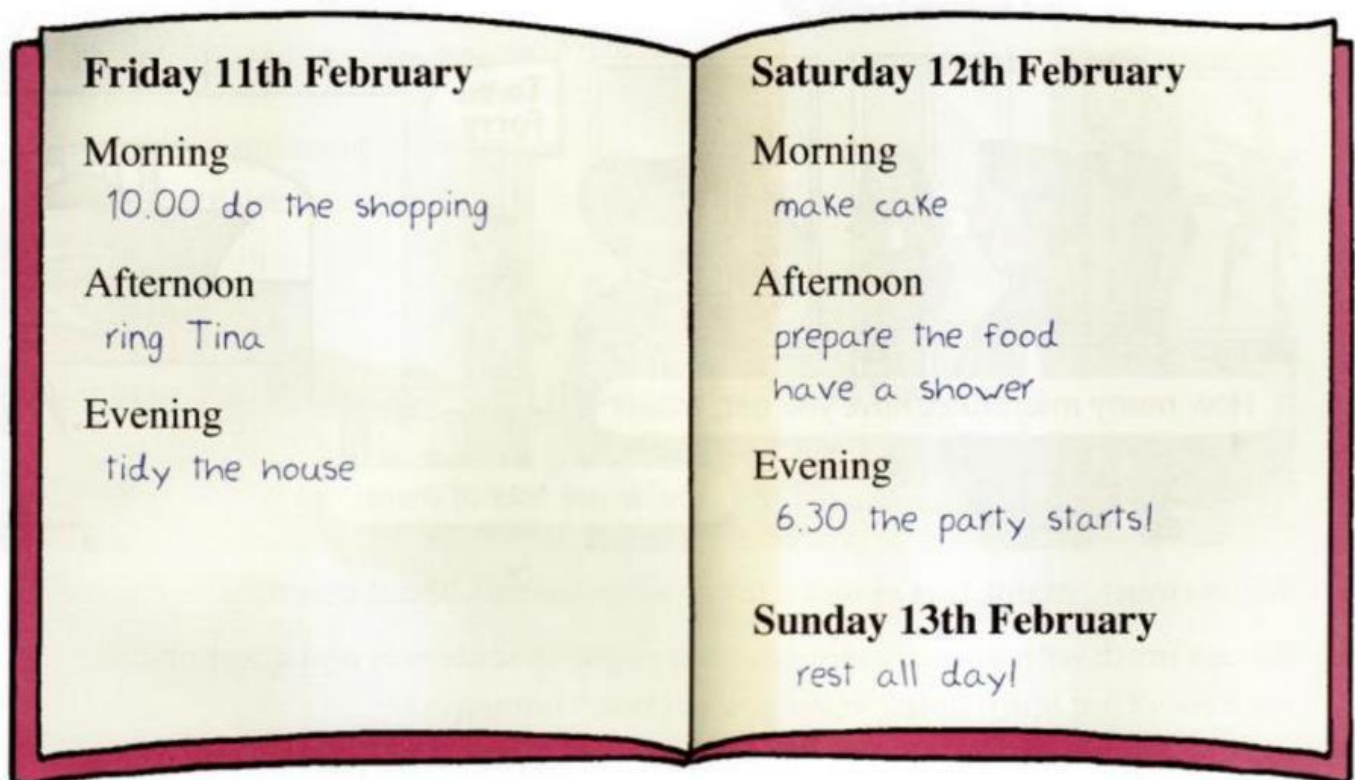 Friday 11th February
Morning
10.00 do the shopping
Afternoon
ring Tina
Evening
tidy the house
Saturday 12th February
Morning
make cake
Afternoon
prepare the food
have a shower
Evening
6.30 the party starts!
Sunday 13th February
rest all day!